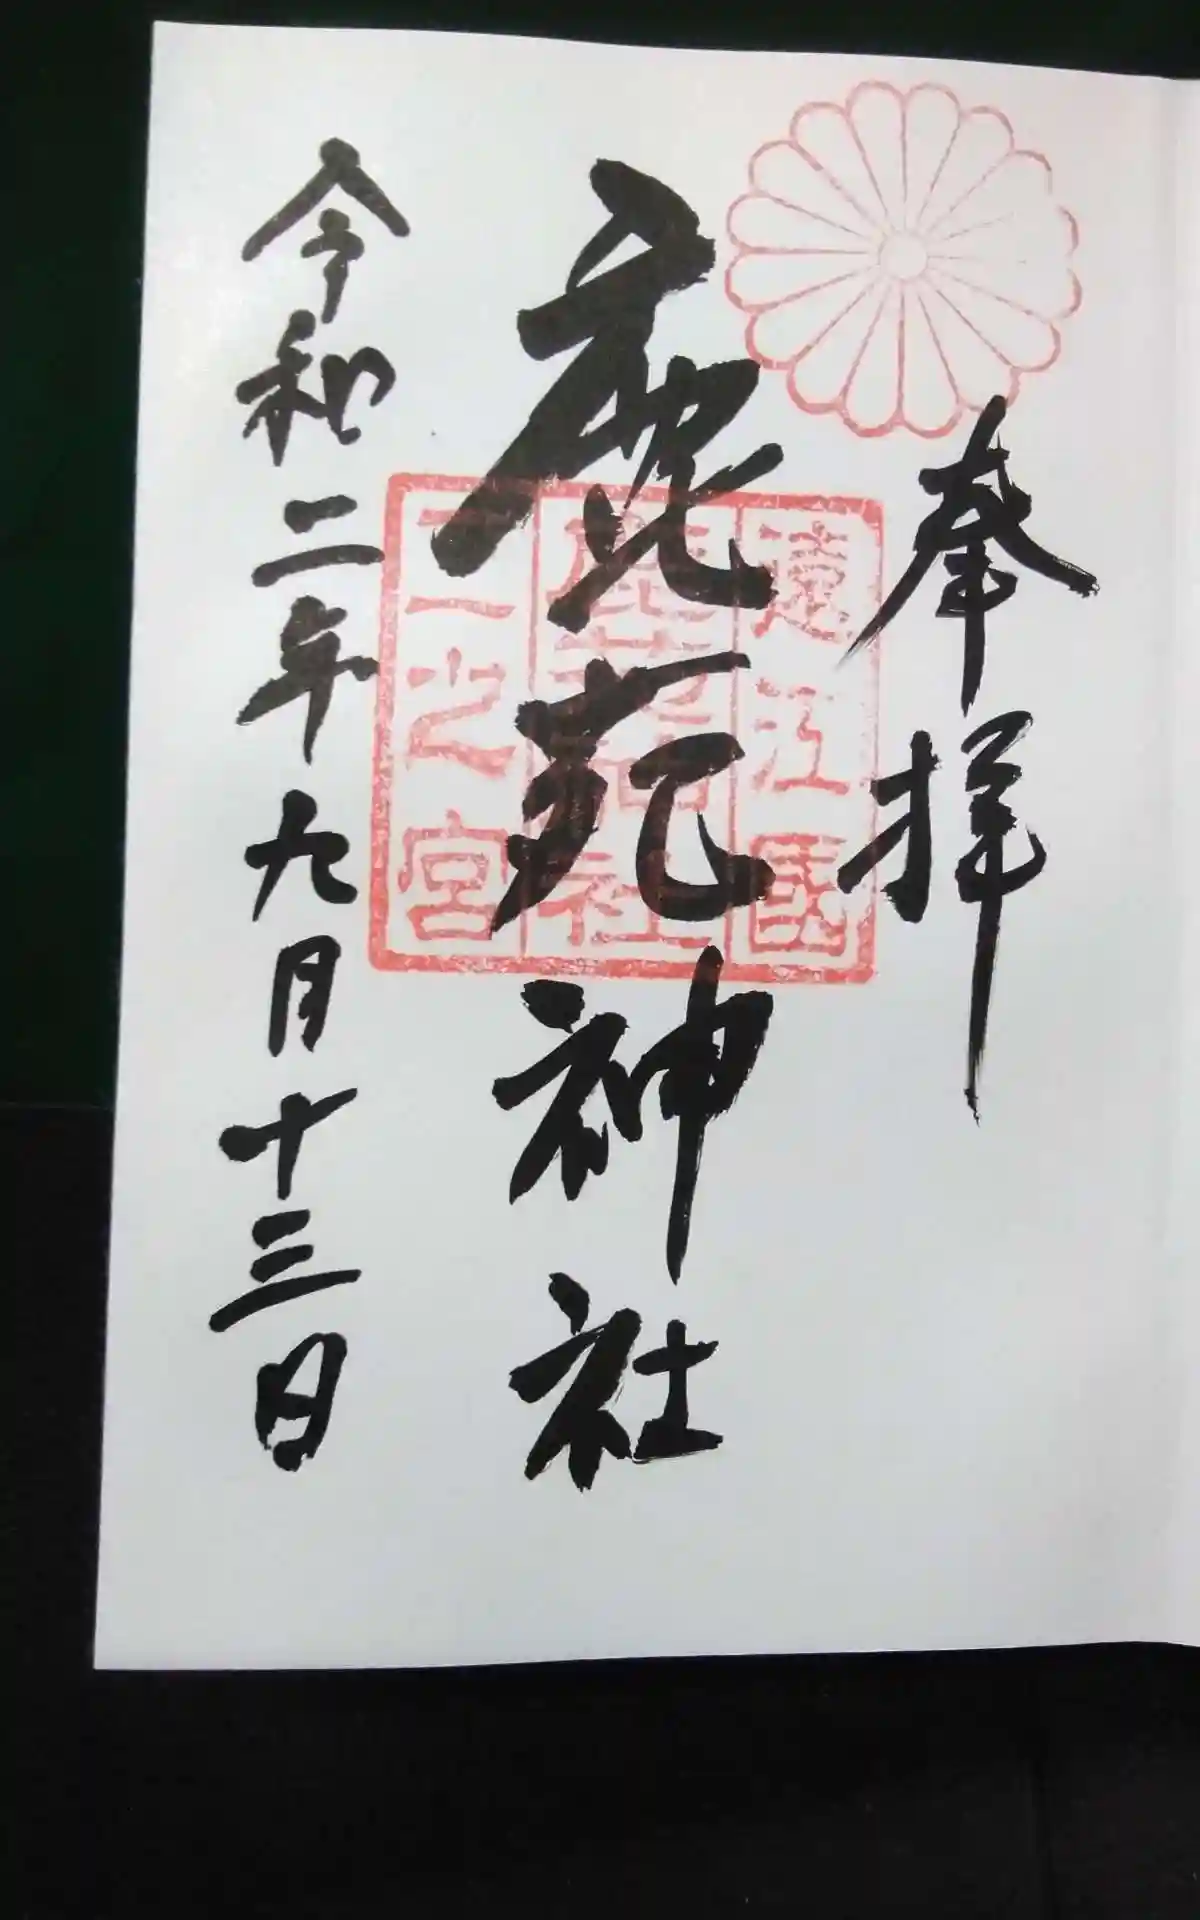 奉拝
遠江國
鹿苑神社
二之宮
鹿苑神社
令和二年九月十三日